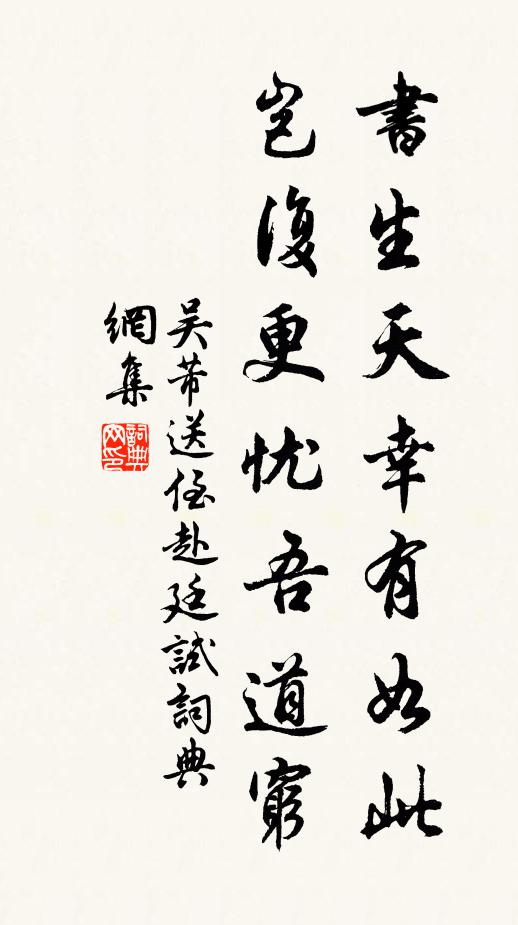 書生天幸有如此
豈復更忧吾道窮
吴芾送侄赴廷試詞典
網集
詞典网印